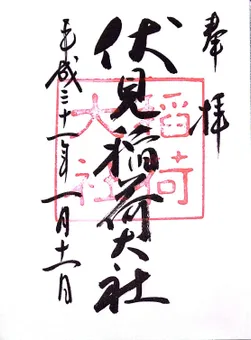 奉拝
伏見稲荷大社
稲荷
大社
平成三十一年一月十一日